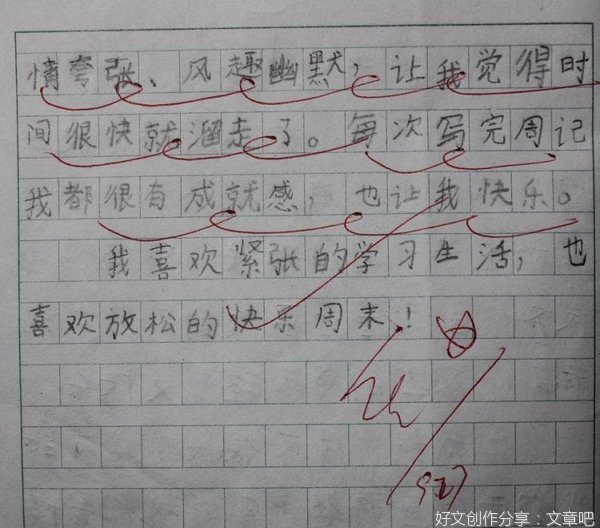 情夸张、风趣幽默，让我觉得时
间很快就溜走了。每次写完周记
我都很有成就感，也让我快乐。
我喜欢紧张的学习生活，也
喜欢放松的快乐周末！
好文创作分享：文章吧